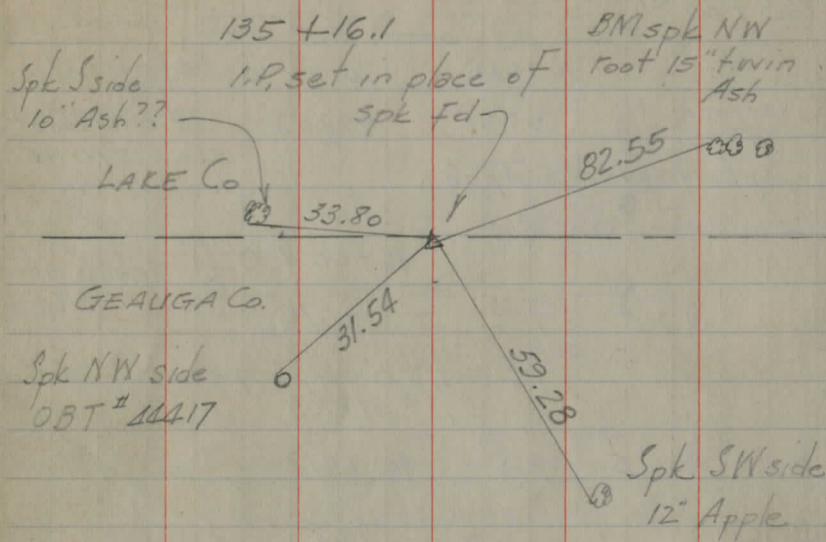 135 +16.1
I.P. set in place of
spk Fd
BM spk NW
root 15" twin
Ash
Spk S side
10" Ash??
LAKE Co
33.80
82.55
GEAUGA Co.
31.54
59.28
Spk NW side
OBT # 44417
Spk SW side
12" Apple